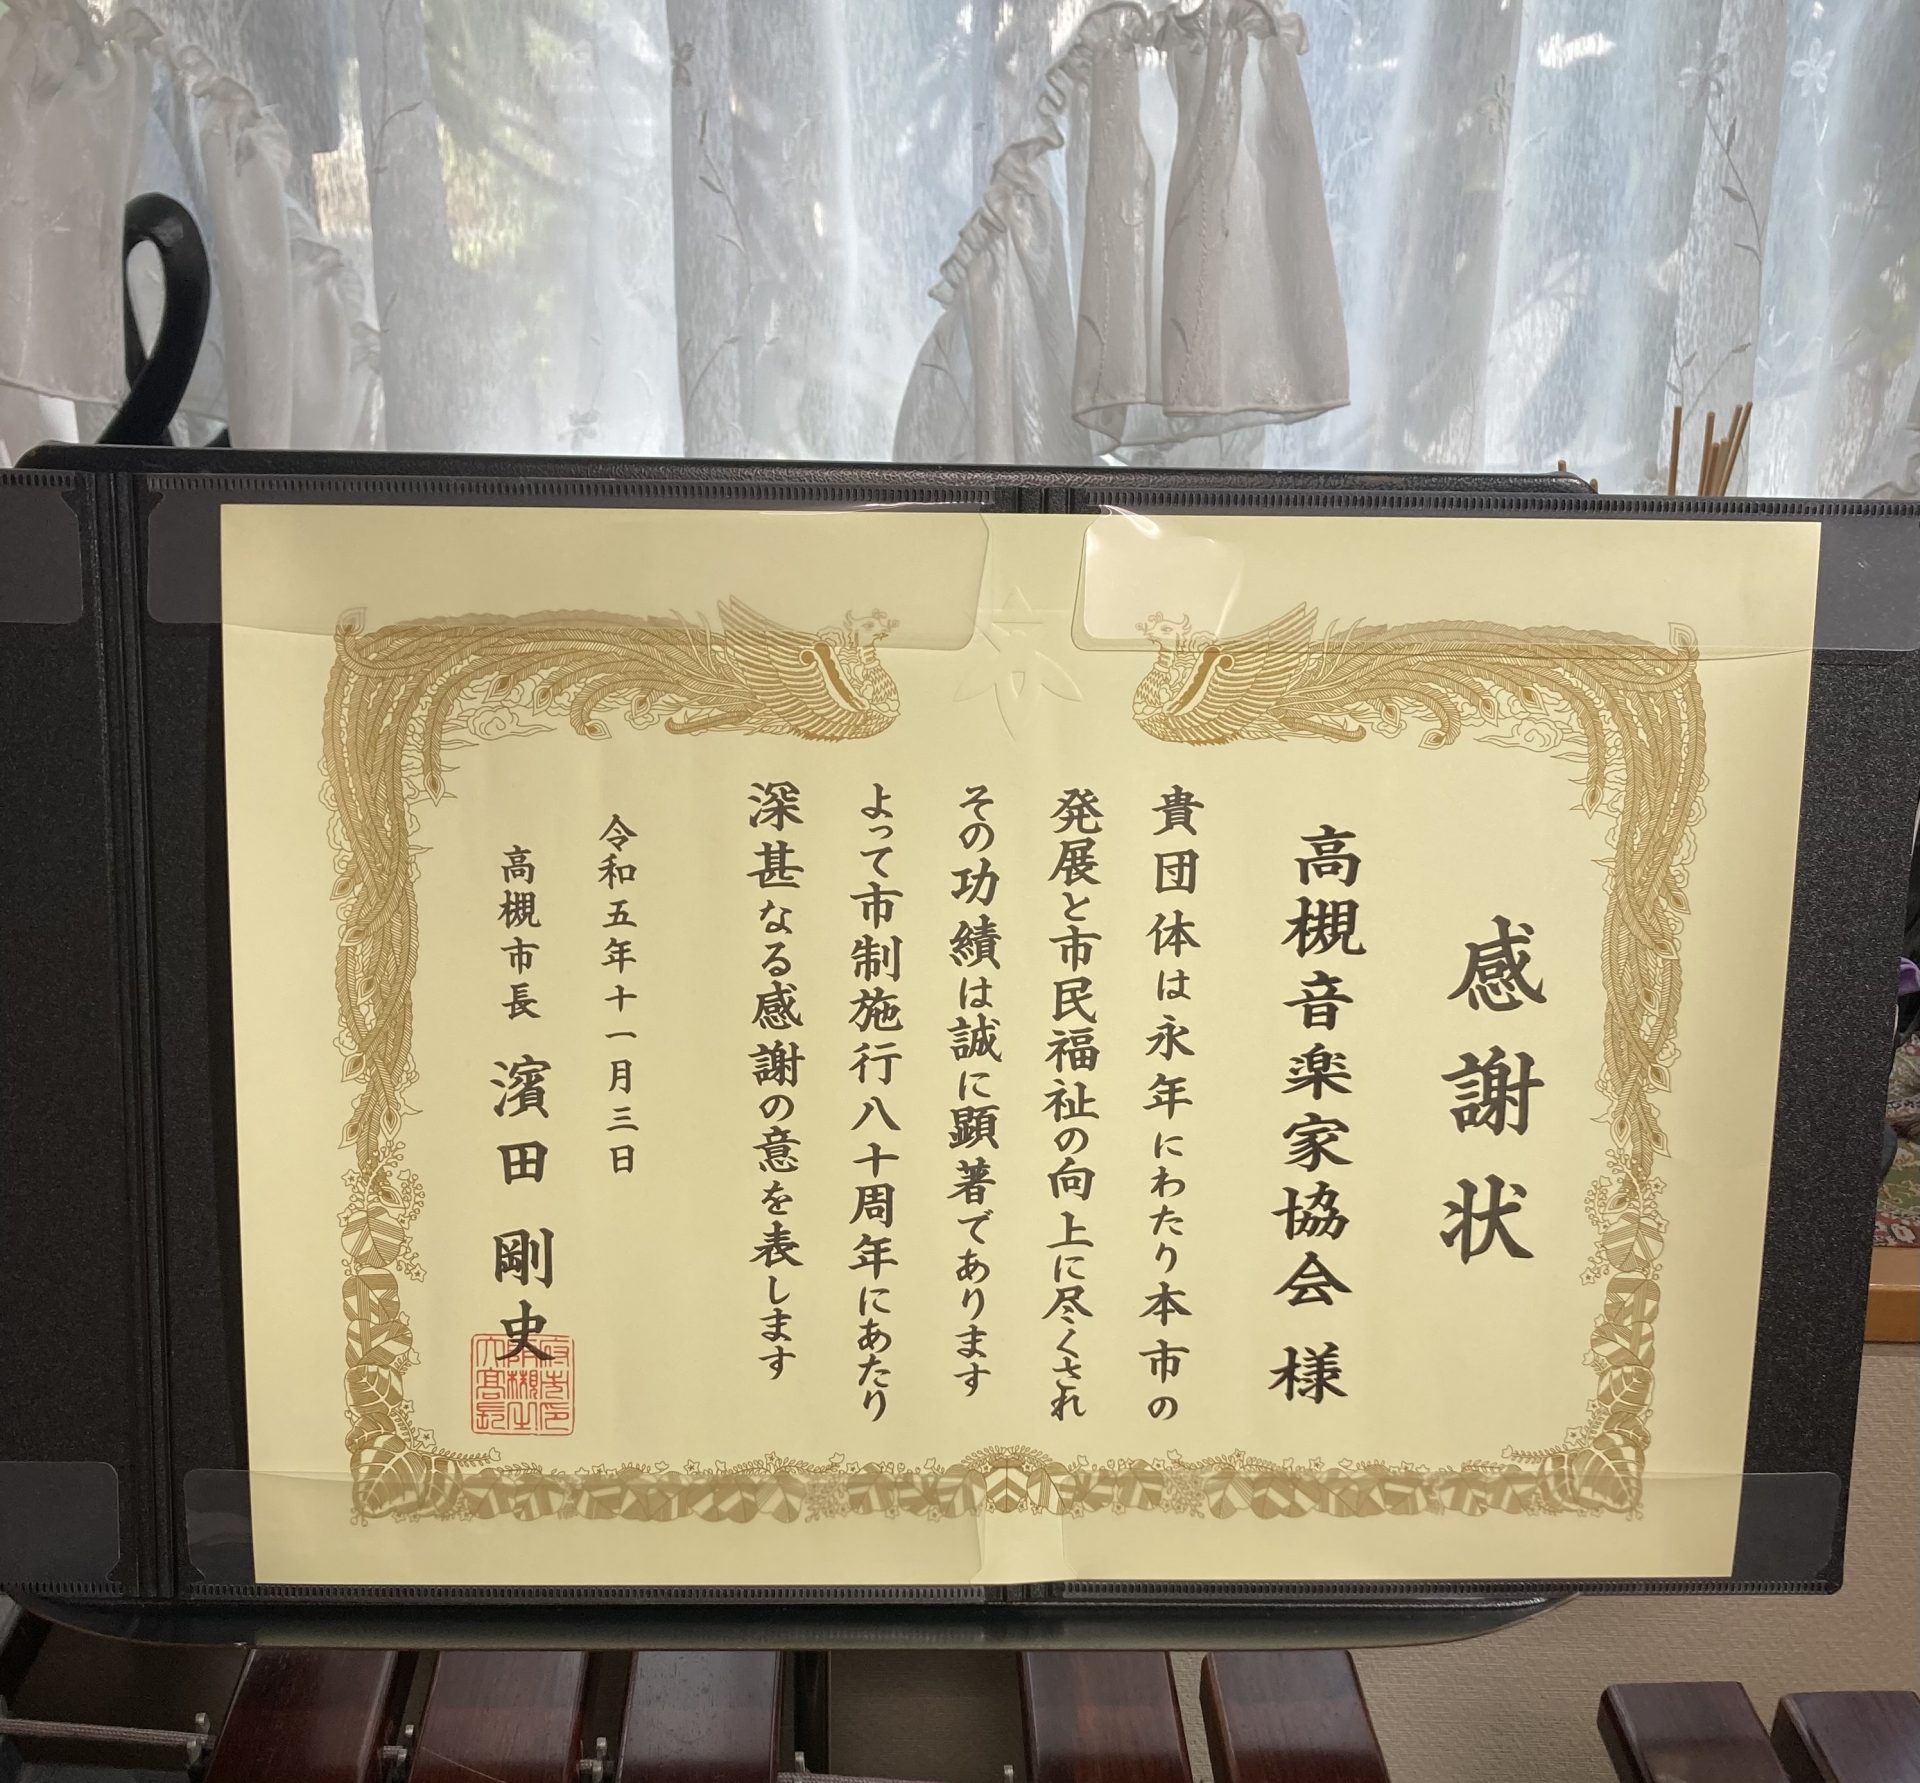 感謝状
高槻音楽家協会 様
貴団体は永年にわたり本市の
発展と市民福祉の向上に尽くされ
その功績は誠に顕著であります
よって市制施行八十周年にあたり
深甚なる感謝の意を表します
令和五年十一月三日
高槻市長 濱田 剛史